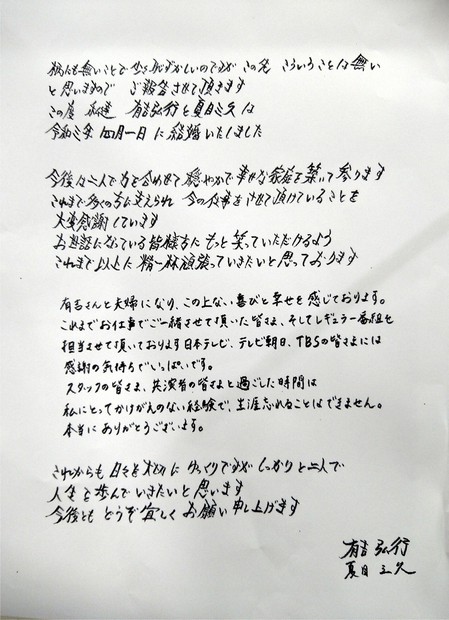 柄にも無いことで少々恥ずかしいのですが この先 こういうことは無い
と思いますので ご報告させて頂きます
この度 私達 有吉弘行と夏目三久は
令和三年 四月一日に結婚いたしました
今後は二人で力を合わせて 穏やかで幸せな家庭を築いて参ります
これまで多くの方に支えられ 今の仕事をさせて頂けていることを
大変感謝しています
お世話になっている皆様方に もっと笑っていただけるよう
これまで以上に精一杯頑張っていきたいと思っております
有吉さんと夫婦になり、この上ない喜びと幸せを感じております。
これまでお仕事でご一緒させて頂いた皆さま、そしてレギュラー番組を
担当させて頂いております日本テレビ、テレビ朝日、TBSの皆さまには
感謝の気持ちでいっぱいです。
スタッフの皆さま、共演者の皆さまと過ごした時間は
私にとってかけがえのない経験で、生涯忘れることはできません。
本当にありがとうございます。
これからも 日々を大切に ゆっくりですが しっかりと二人で
人生を歩んでいきたいと思います
今後とも どうぞ宜しく お願い申し上げます
有吉弘行
夏目三久